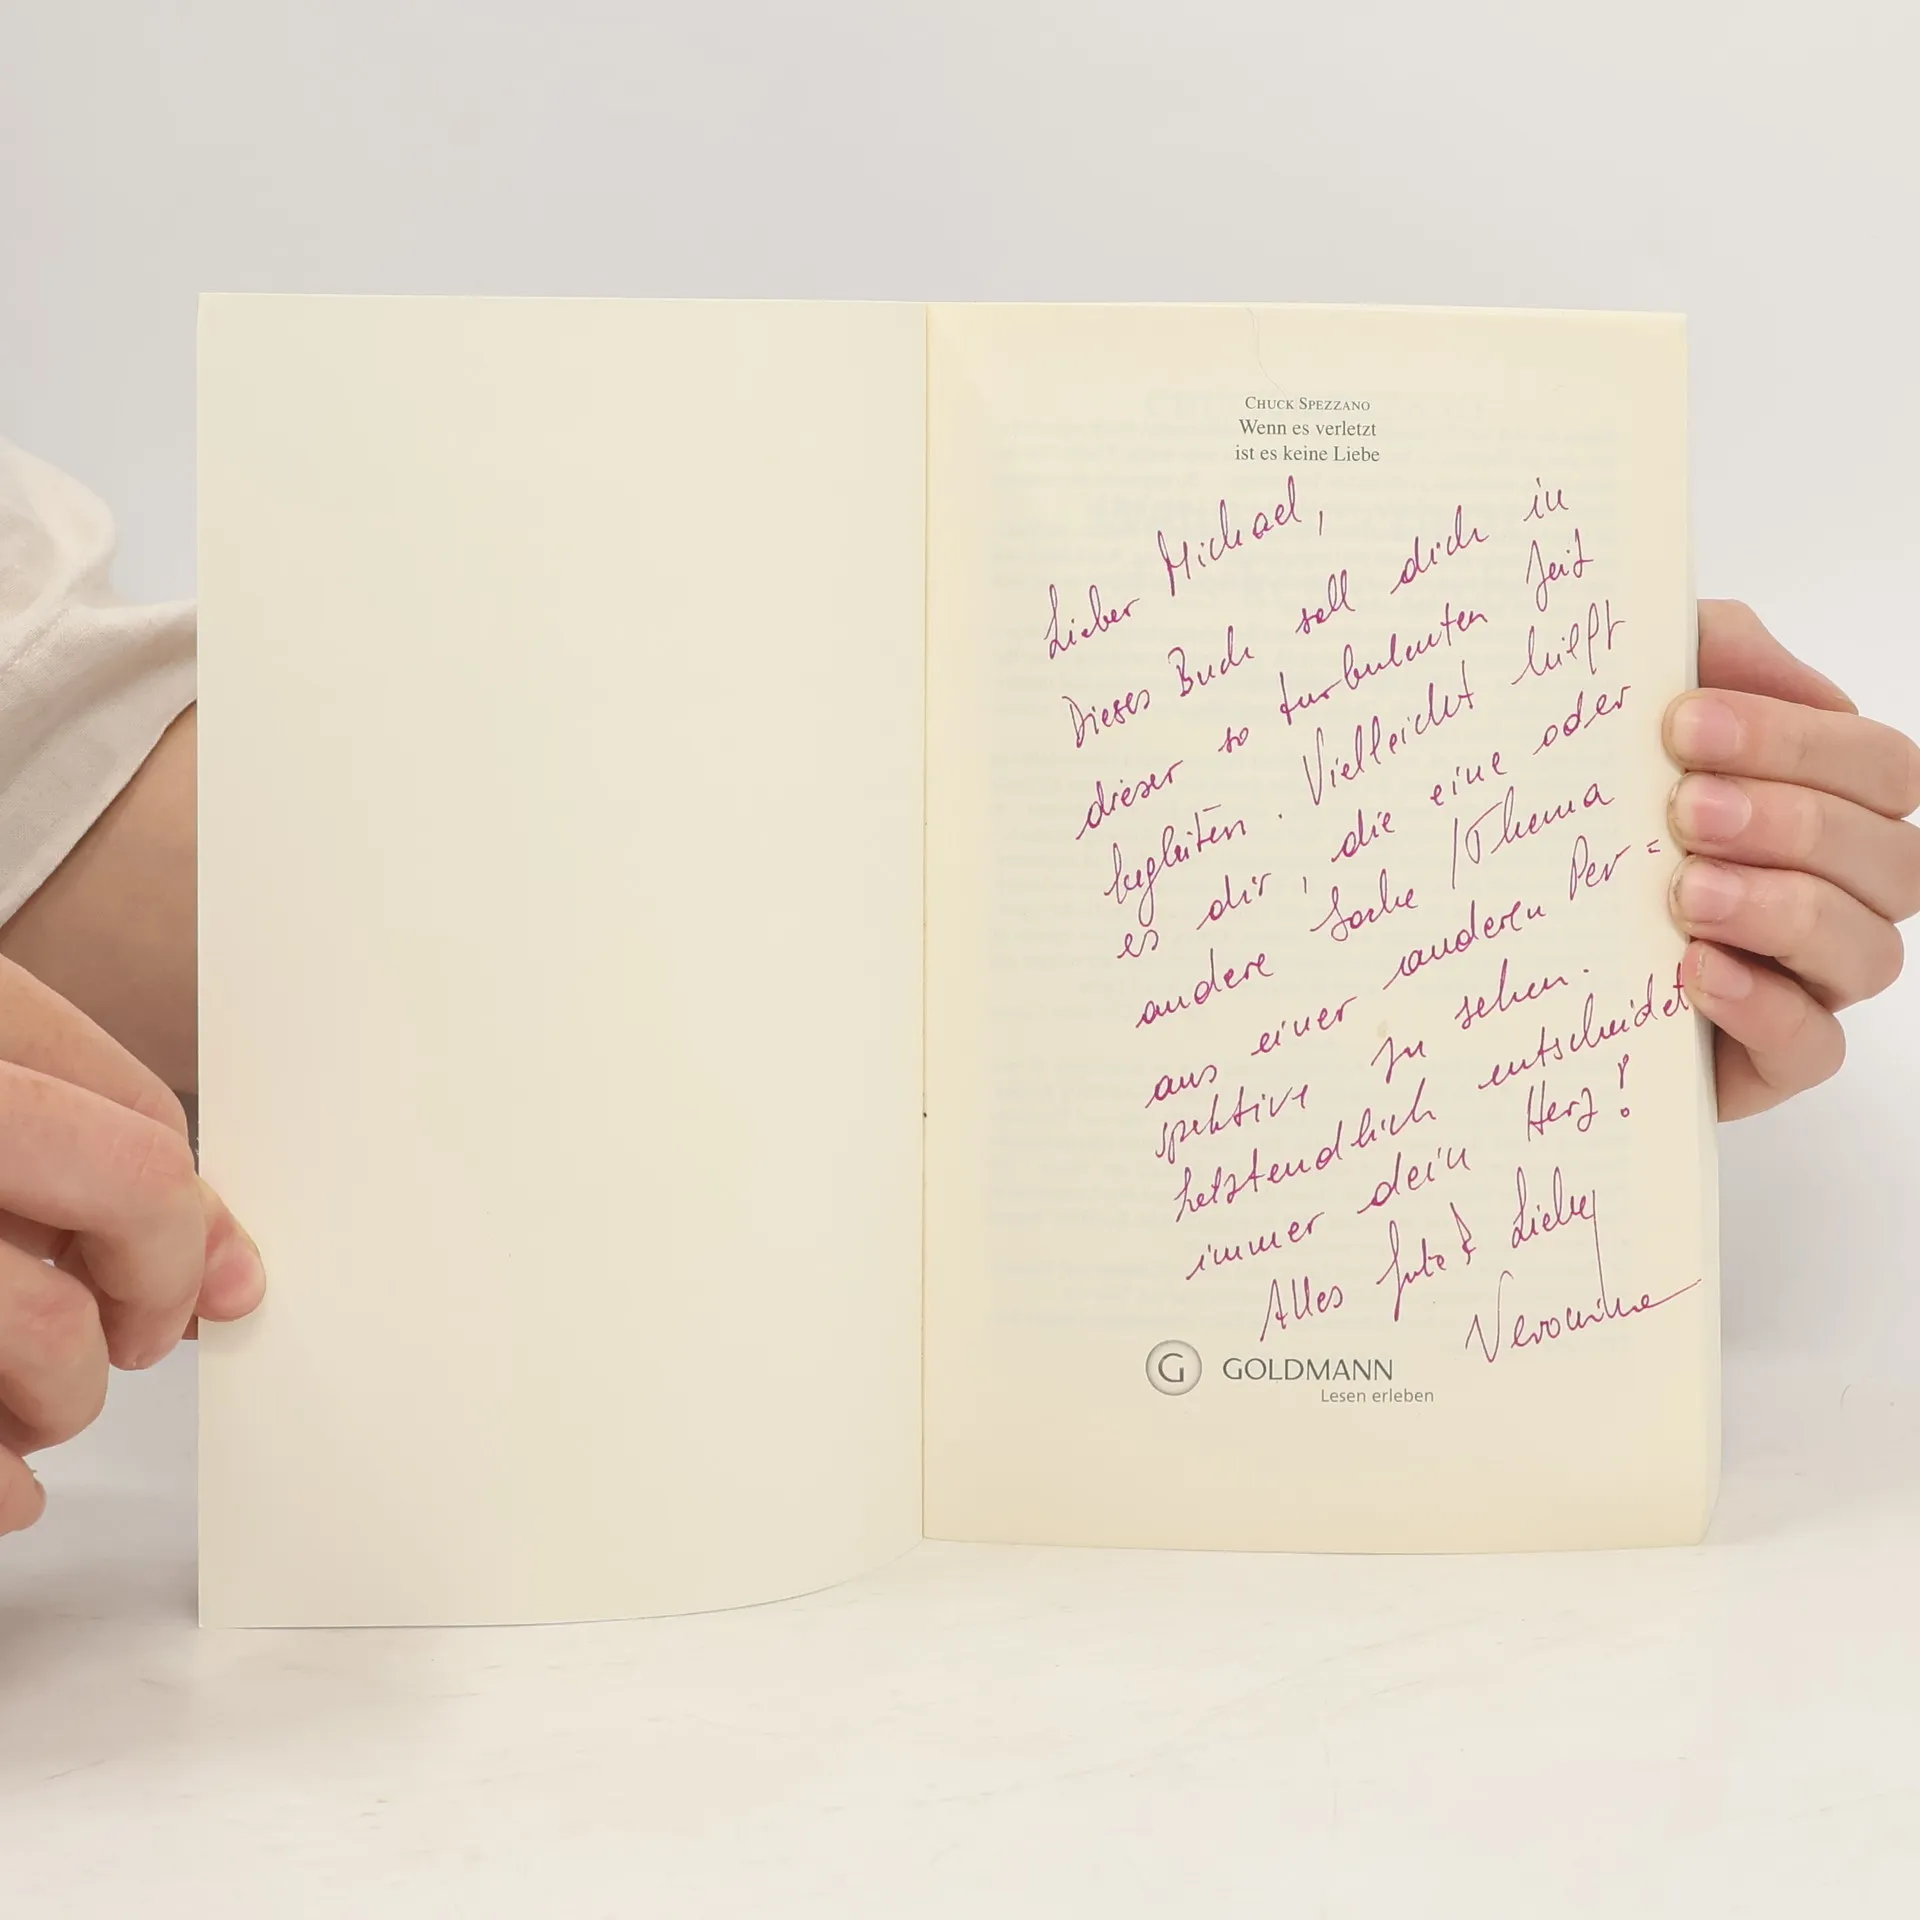 CHUCK SPEZZANO
Wenn es verletzt
ist es keine Liebe
Lieber Michael,
Dieses Buch soll dich in
dieser so turbulenten Zeit
begleiten. Vielleicht hilft
es dir, die eine oder
andere Sache / Thema
aus einer anderen Per=
spektive zu sehen.
Letztendlich entscheidet
immer dein Herz!
Alles Gute & Liebe,
G GOLDMANN
Lesen erleben